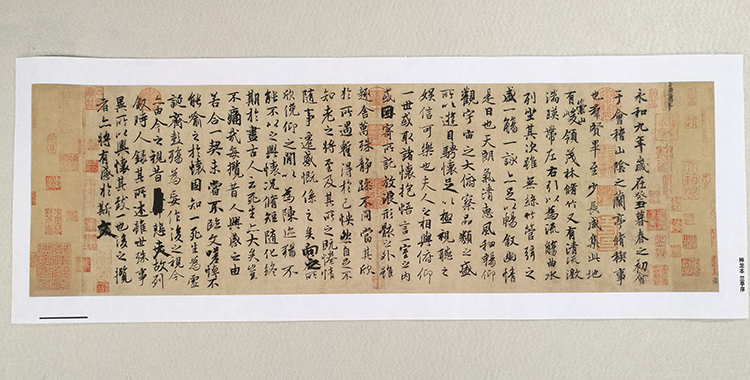 永和九年歲在癸丑暮春之初會
于會稽山陰之蘭亭脩稧事
也羣賢畢至少長咸集此地
有崇山峻領茂林脩竹又有清流激
湍暎帶左右引以為流觴曲水
列坐其次雖無絲竹管弦之
盛一觴一詠亦足以暢敘幽情
是日也天朗氣清惠風和暢仰
觀宇宙之大俯察品類之盛
所以遊目騁懷足以極視聽之
娛信可樂也夫人之相與俯仰
一世或取諸懷抱悟言一室之內
或因寄所託放浪形骸之外雖
趣舍萬殊靜躁不同當其欣
於所遇蹔得於己怏然自足不
知老之將至及其所之既惓情
隨事遷感慨係之矣向之所
欣俛仰之閒以為陳迹猶不
能不以之興懷況脩短隨化終
期於盡古人云死生亦大矣豈
不痛哉每攬昔人興感之由
若合一契未嘗不臨文嗟悼不
能喻之於懷固知一死生為虛
誕齊彭殤為妄作後之視今
亦由今之視昔悲夫故列
敘時人錄其所述雖世殊事
異所以興懷其致一也後之攬
者亦將有感於斯文
神龙本 兰亭序